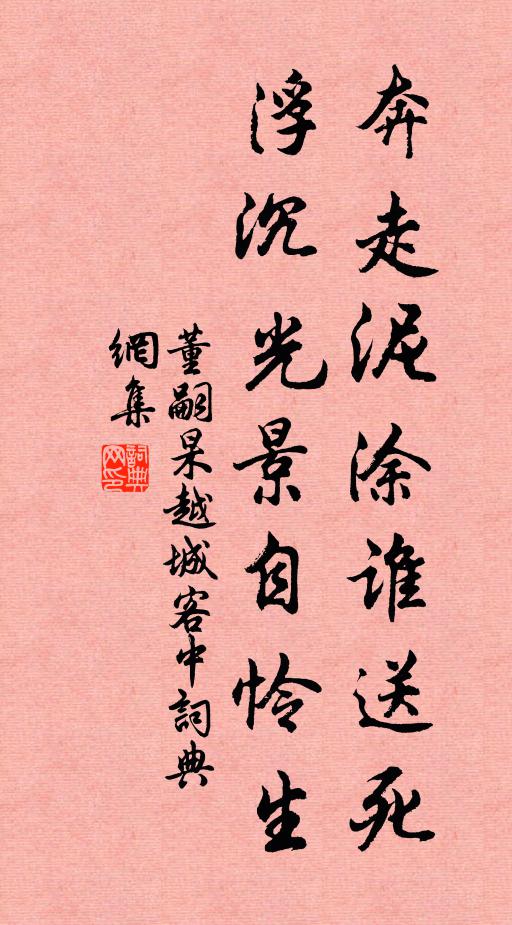 奔走泥涂谁送死
浮沉光景自怜生
董嗣杲越城客中詞典
網集
詞典
网印